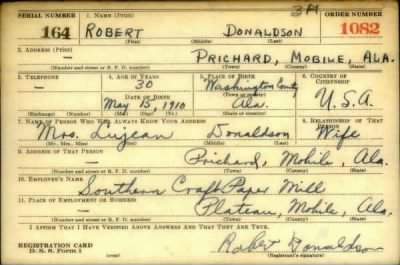 SERIAL NUMBER 1. NAME (Print) 3A ORDER NUMBER
164 ROBERT DONALDSON 1082
(First) (Middle) (Last)
2. ADDRESS (Print)
— PRICHARD, MOBILE, ALA.
(Number and street or R. F. D. number) (Town) (County) (State)
3. TELEPHONE 4. AGE IN YEARS 5. PLACE OF BIRTH 6. COUNTRY OF CITIZENSHIP
— 30 Washington County
DATE OF BIRTH (Town or county)
May 15, 1910 Ala. U.S.A.
(Exchange) (Number) (Mo.) (Day) (Yr.) (State or country)
7. NAME OF PERSON WHO WILL ALWAYS KNOW YOUR ADDRESS 8. RELATIONSHIP OF THAT PERSON
Mrs. Lujean Donaldson Wife
(Mr., Mrs., Miss) (First) (Middle) (Last)
9. ADDRESS OF THAT PERSON
— Prichard, Mobile, Ala.
(Number and street or R. F. D. number) (Town) (County) (State)
10. EMPLOYER'S NAME
Southern Craft Paper Mill
11. PLACE OF EMPLOYMENT OR BUSINESS
— Plateau, Mobile, Ala.
(Number and street or R. F. D. number) (Town) (County) (State)
I AFFIRM THAT I HAVE VERIFIED ABOVE ANSWERS AND THAT THEY ARE TRUE.
REGISTRATION CARD
D. S. S. Form 1 Robert Donaldson
(Registrant's signature)